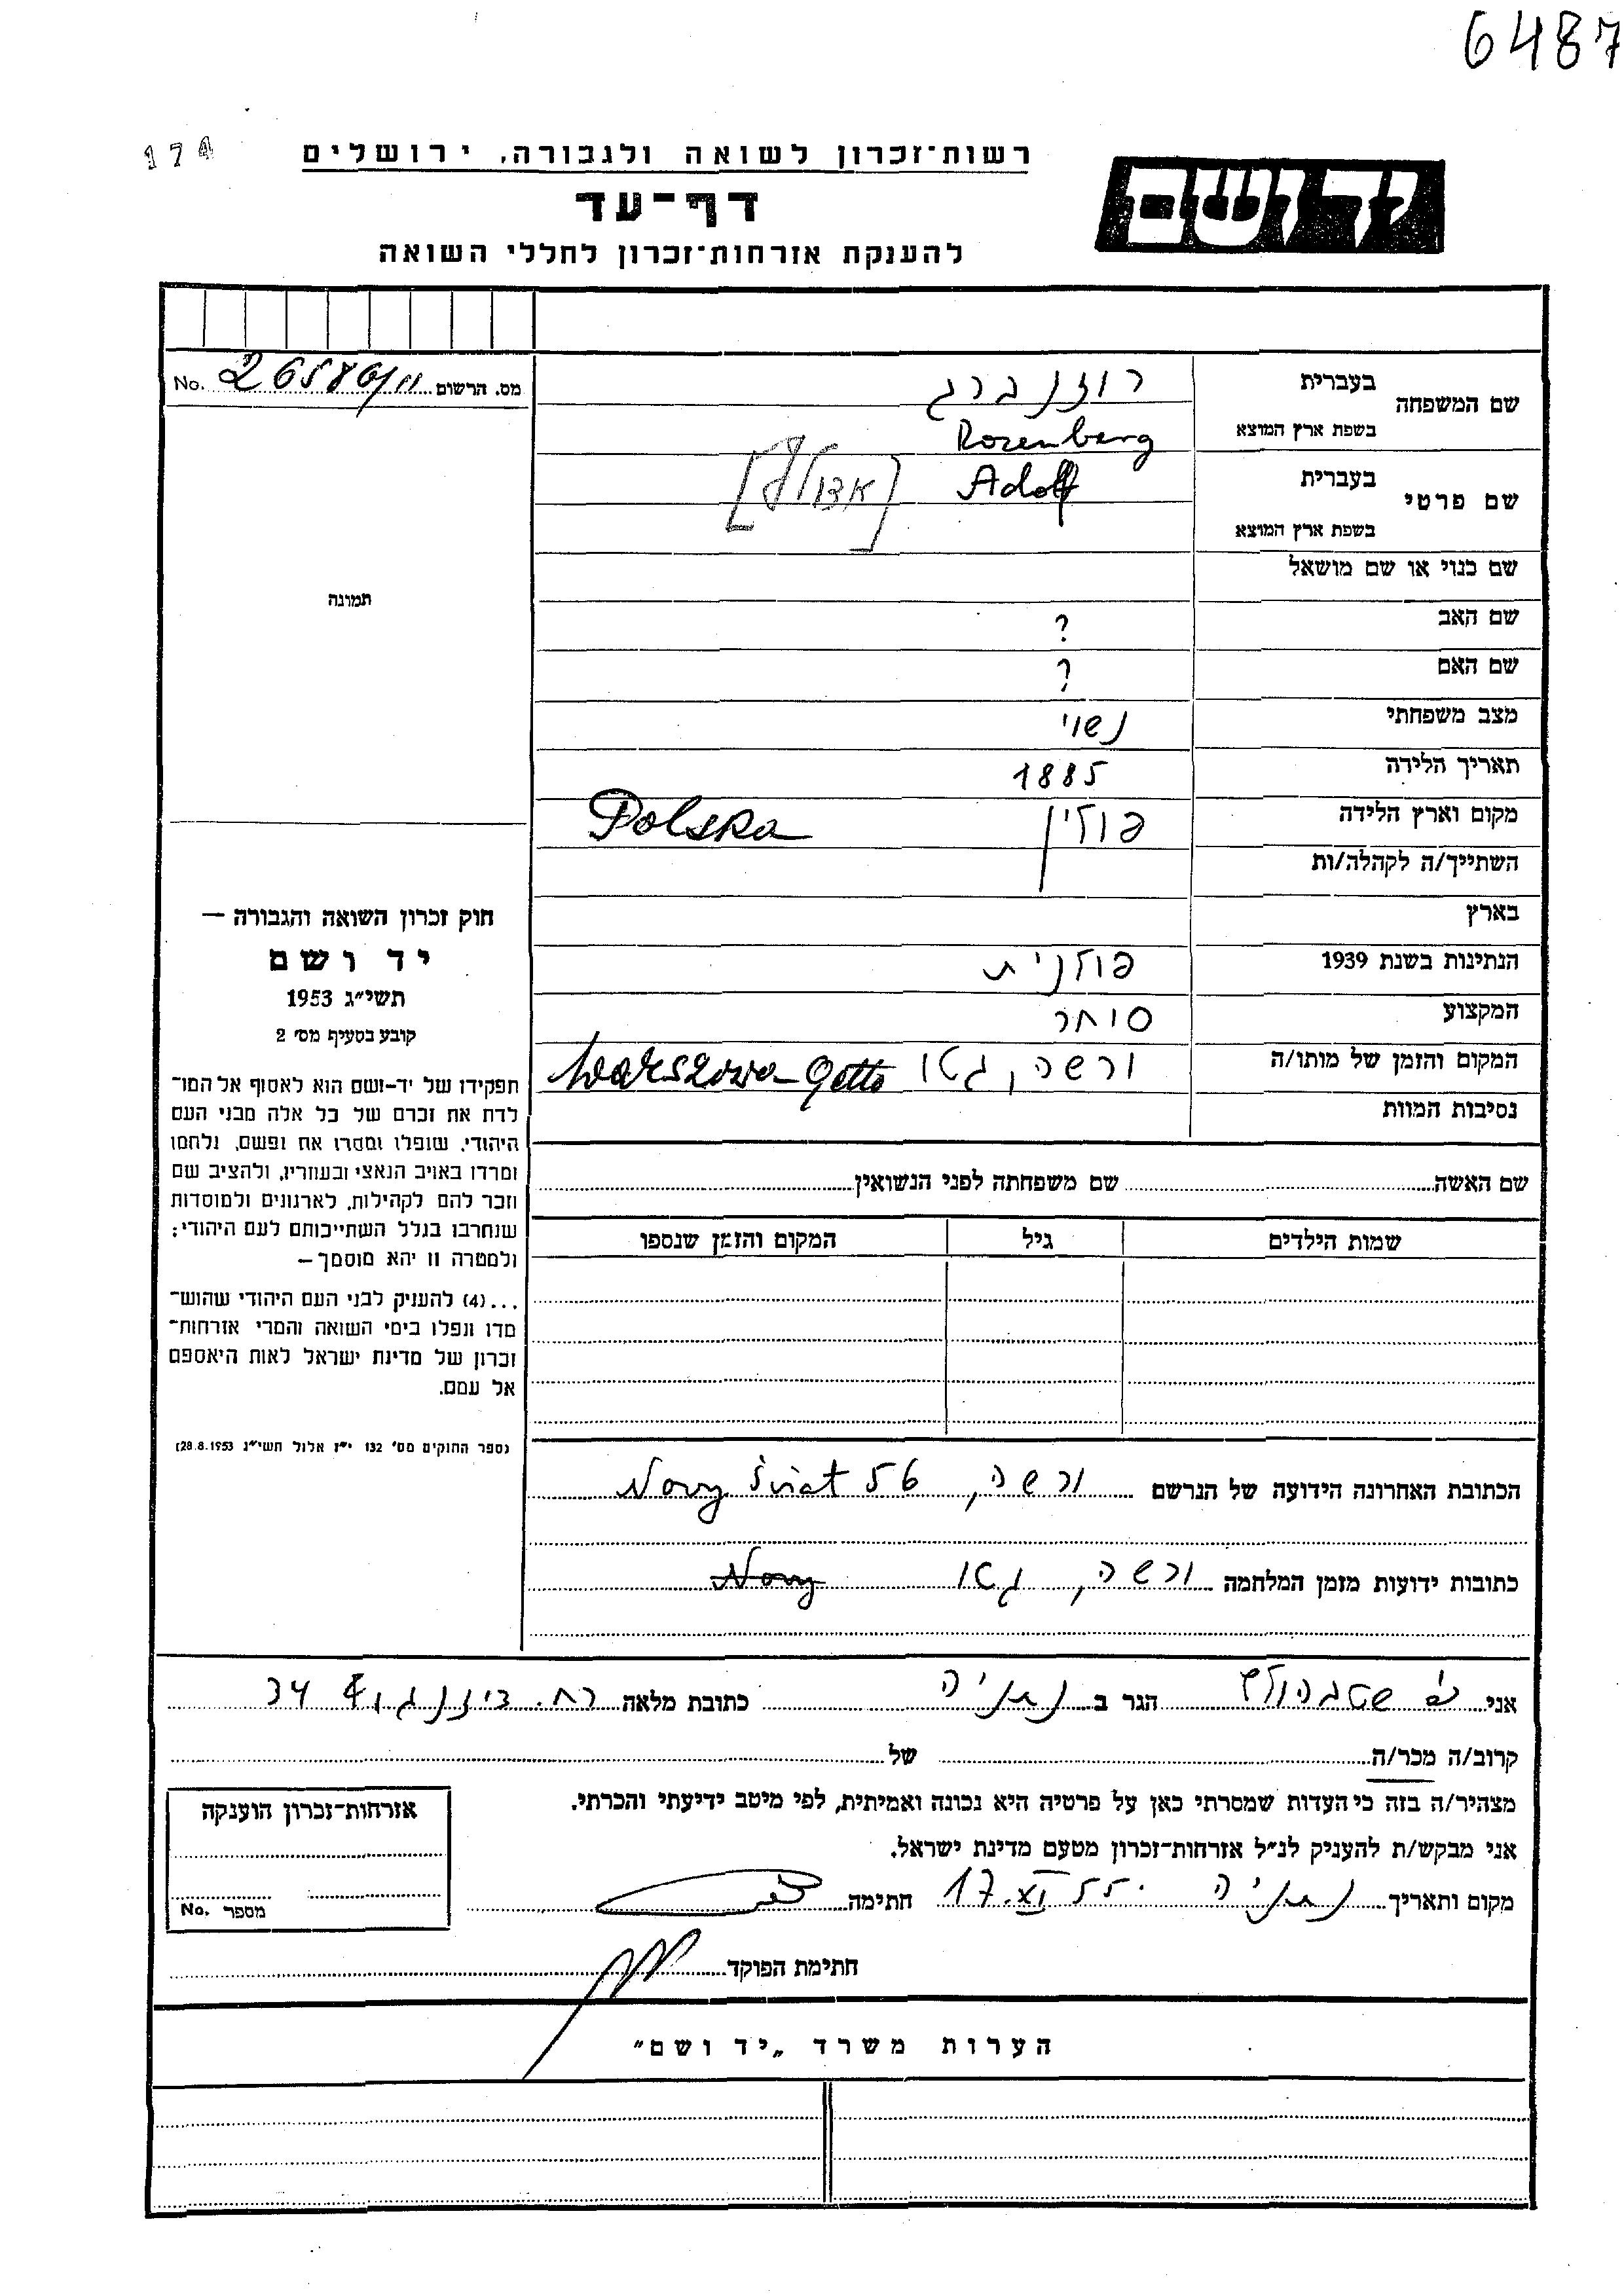 6487
174
רשות־זכרון לשואה ולגבורה, ירושלים
יד ושם
דף־עד
להענקת אזרחות־זכרון לחללי השואה
מס. הרשום No. 26586/11
שם המשפחה בעברית רוזנברג
בשפת ארץ המוצא Rozenberg
שם פרטי בעברית Adolf [אדולף]
בשפת ארץ המוצא
שם כנוי או שם מושאל
תמונה
שם האב ?
שם האם ?
מצב משפחתי נשוי
תאריך הלידה 1885
מקום וארץ הלידה פולין Polska
השתייך/ה לקהלה/ות
בארץ
הנתינות בשנת 1939 פולנית
המקצוע סוחר
המקום והזמן של מותו/ה ורשה, גטו Warszawa-Getto
נסיבות המוות
חוק זכרון השואה והגבורה —
יד ושם
תשי״ג 1953
קובע בסעיף מס׳ 2
תפקידו של יד-ושם הוא לאסוף אל המו־
לדת את זכרם של כל אלה מבני העם
היהודי, שנפלו ומסרו את נפשם, נלחמו
ומרדו באויב הנאצי ובעוזריו, ולהציב שם
וזכר להם לקהילות, לארגונים ולמוסדות
שנחרבו בגלל השתייכותם לעם היהודי;
ולמטרה זו יהא מוסמך —
...(4) להעניק לבני העם היהודי שהוש־
מדו ונפלו בימי השואה והמרי אזרחות־
זכרון של מדינת ישראל לאות היאספם
אל עמם.
(ספר החוקים מס׳ 132 י״ז אלול תשי״ג 28.8.1953)
שם האשה שם משפחתה לפני הנשואין
שמות הילדים גיל המקום והזמן שנספו
הכתובת האחרונה הידועה של הנרשם ורשה, Nowy Świat 56
כתובות ידועות מזמן המלחמה ורשה, גטו Nowy
אני הגר ב נתניה כתובת מלאה רח. דיזנגוף 34
קרוב/ה מכר/ה של
מצהיר/ה בזה כי העדות שמסרתי כאן על פרטיה היא נכונה ואמיתית, לפי מיטב ידיעתי והכרתי.
אני מבקש/ת להעניק לנ״ל אזרחות־זכרון מטעם מדינת ישראל.
מקום ותאריך נתניה 17.XI.55 חתימה
אזרחות־זכרון הוענקה
מספר No.
חתימת הפוקד
הערות משרד „יד ושם״